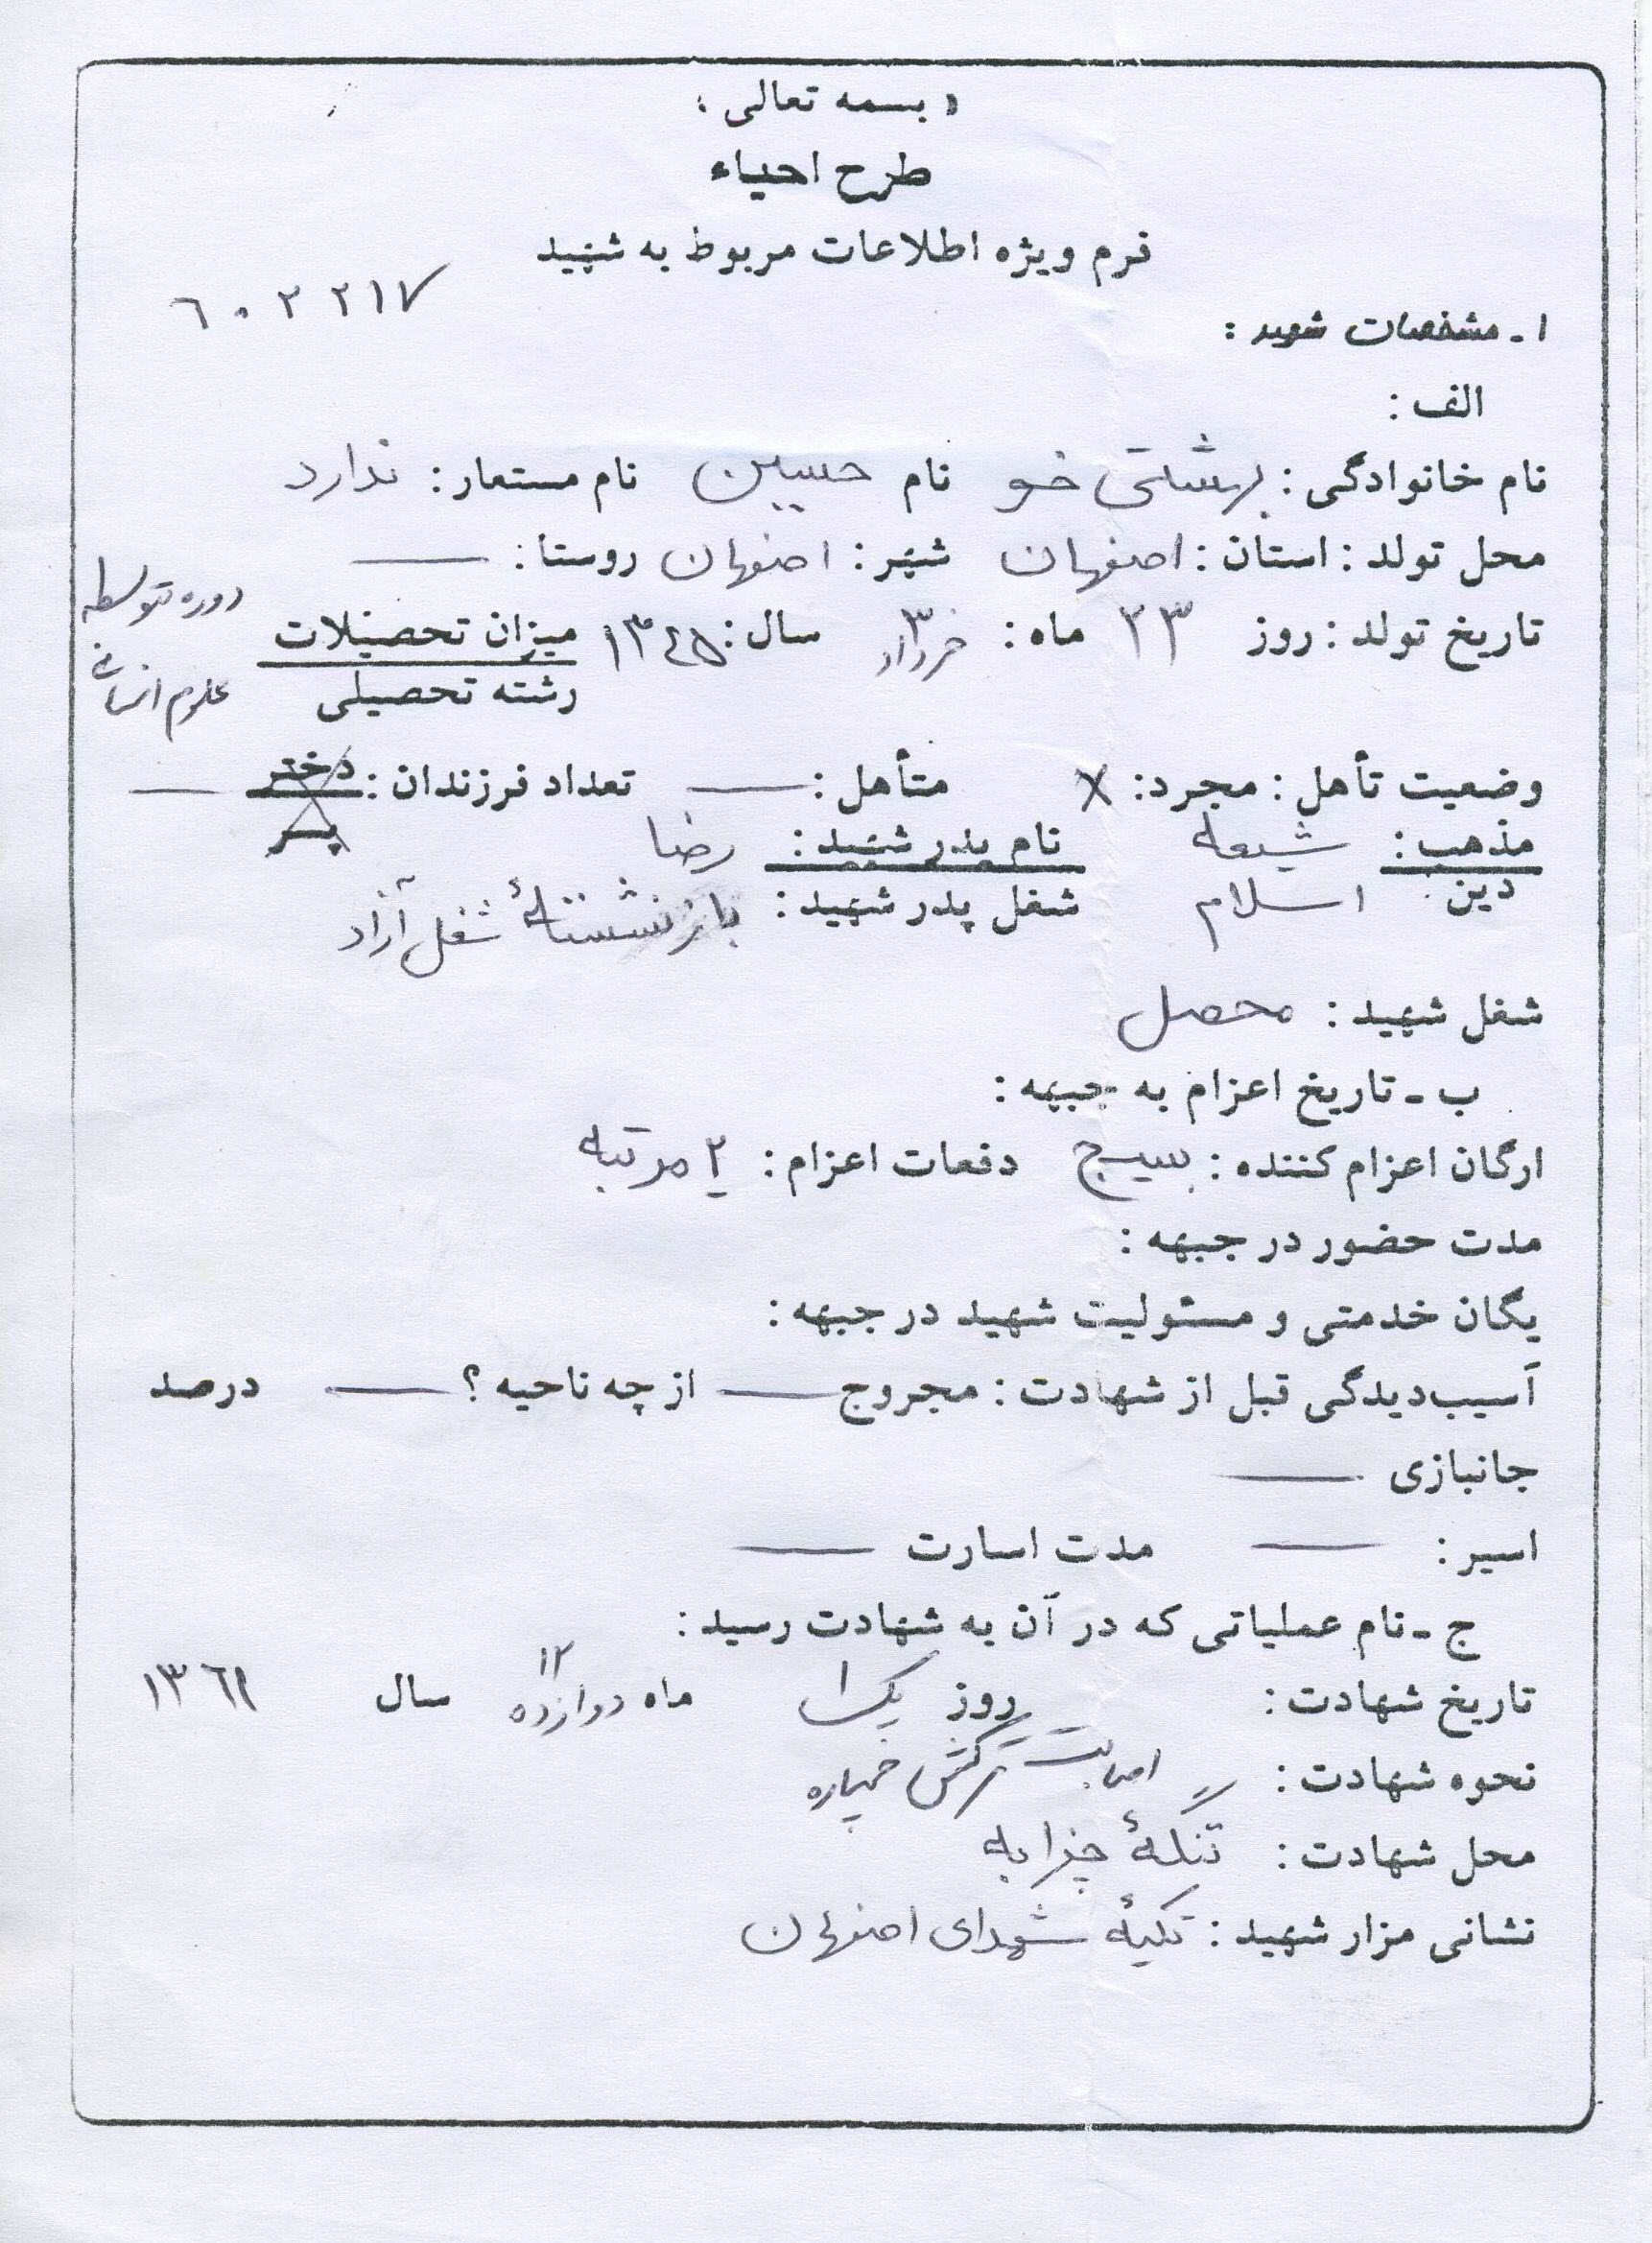 « بسمه تعالی »
طرح احیاء
فرم ویژه اطلاعات مربوط به شهید
۶۰۲۲۱۷
۱ـ مشخصات شهید :
الف :
نام خانوادگی : بهشتی خو نام حسین نام مستعار : ندارد
محل تولد : استان : اصفهان شهر : اصفهان روستا : ــ
تاریخ تولد : روز ۲۳ ماه : ۳ خرداد سال : ۱۳۴۵ میزان تحصیلات دوره متوسطه
رشته تحصیلی علوم انسانی
وضعیت تأهل : مجرد : X متأهل : ــ تعداد فرزندان : دختر ــ
پسر
مذهب : شیعه نام پدر شهید : رضا
دین اسلام شغل پدر شهید : بازنشستهٔ شغل آزاد
شغل شهید : محصل
ب ـ تاریخ اعزام به جبهه :
ارگان اعزام کننده : بسیج دفعات اعزام : ۲ مرتبه
مدت حضور در جبهه :
یگان خدمتی و مسئولیت شهید در جبهه :
آسیب‌دیدگی قبل از شهادت : مجروح ــ از چه ناحیه ؟ ــ درصد
جانبازی ــ
اسیر : ــ مدت اسارت ــ
ج ـ نام عملیاتی که در آن به شهادت رسید :
تاریخ شهادت : روز یک ۱ ماه دوازده ۱۲ سال ۱۳۶۱
نحوه شهادت : اصابت ترکش خمپاره
محل شهادت : تنگهٔ چزابه
نشانی مزار شهید : تکیهٔ شهدای اصفهان